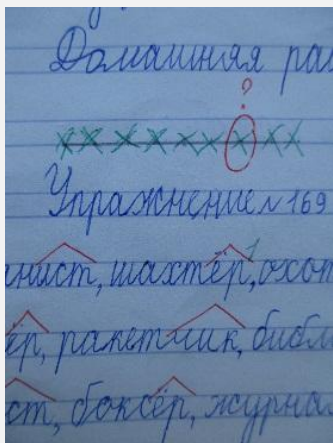 Домашняя раб
?
Упражнение № 169
нист, шахтёр, охот
ёр, ракетчик, библ
ст, боксёр, журнал